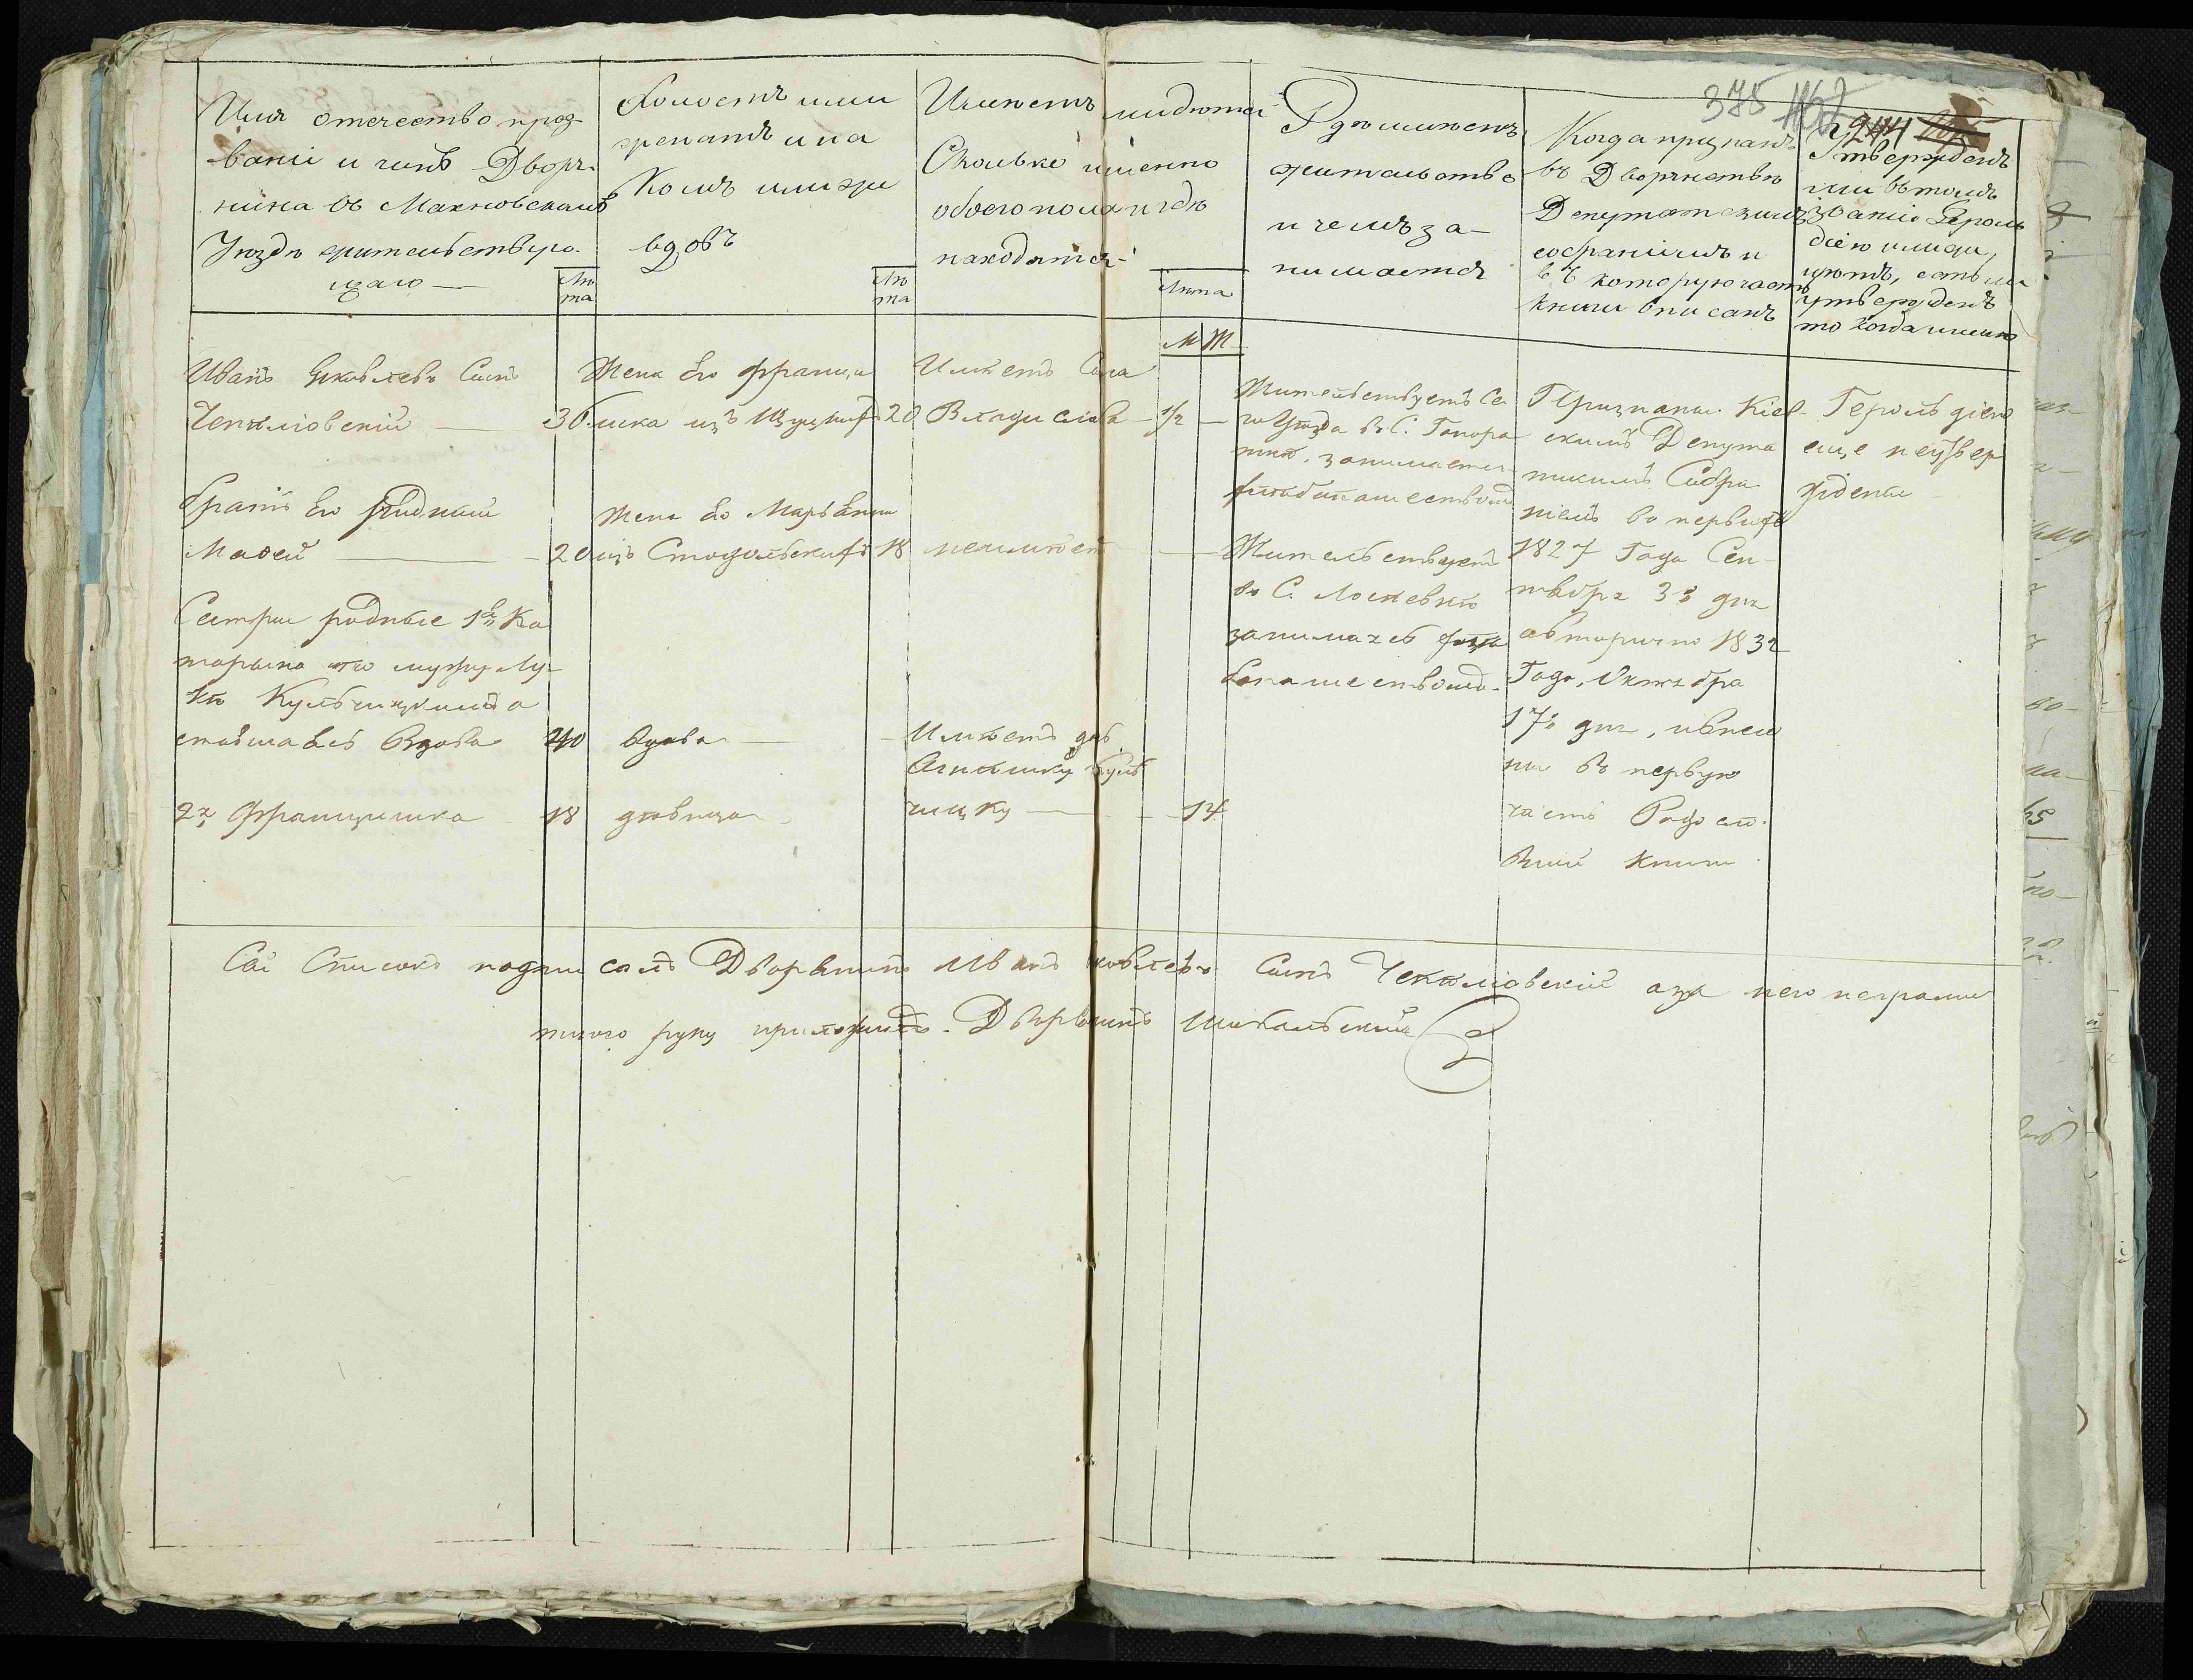 375 1167
244
Имя отечество проз-
ваніе и чинъ Дворя-
нина въ Махновскомъ
Уѣздѣ жительствую-
щаго —
Лѣ
та
Холостъ или
женатъ и на
комъ или же
вдовъ
Лѣ
та
Имѣетъ ли дѣтей
Сколько именно
обоего пола и гдѣ
находятся
Лѣта
М Ж
Гдѣ имѣетъ
жительство
и чемъ за-
нимается
Когда признанъ
въ Дворянствѣ
Депутатскимъ
собраніемъ и
въ которую часть
книги вписанъ
Утвержденъ
ли въ томъ
званіи Героль
діею или
нѣтъ, если
утвержденъ
то когда именно
Иванъ Яковлевъ Сынъ
Чекаліовскій — 30
Жена Его Франци
шка изъ 20
Имѣетъ Сына
Владислава — 1/2 —
Жительствуетъ Се
го Уѣзда въ С. Топора
хъ. занимается
хлѣбопашествомъ
Признаны Кіев-
скимъ Депута
тскимъ Собра
ніемъ во первыхъ
1827 Года Сен-
тября 3го дня
авторично 1832
Года, Октября
17го дня, и внесе
ны въ первую
часть Родосло
вной книги
Герольдіею
еще неутвер
ждены
братъ Его родный
Мафей — 20
Жена Его Марьянна
изъ Стодольскихъ 18
неимѣетъ —
Жительствуетъ
въ С.
занимаясь хлѣбо
пашествомъ.
Сестры родные 1я Ка
тарына по мужу Лу-
кѣ Кульчицкимъ о
ставшаясь Вдова 40
вдова —
Имѣетъ дочь
Агнышку Куль
чицку — 14
2я Францишка 18
дѣвица
Сей Списокъ подписалъ Дворянинъ Иванъ Яковлевъ Сынъ Чекаліовскій аза него неграмо
тного руку приложилъ. Дворянинъ